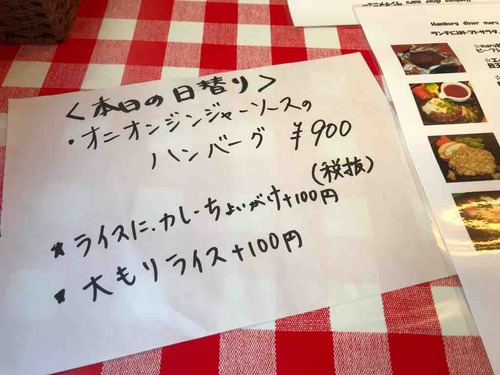 <本日の日替り>
・オニオンジンジャーソースの
ハンバーグ ¥900
(税抜)
★ライスに、カレーちょいがけ+100円
★大もりライス+100円
Hamburg diner maru
ランチにはトマトサラダ、